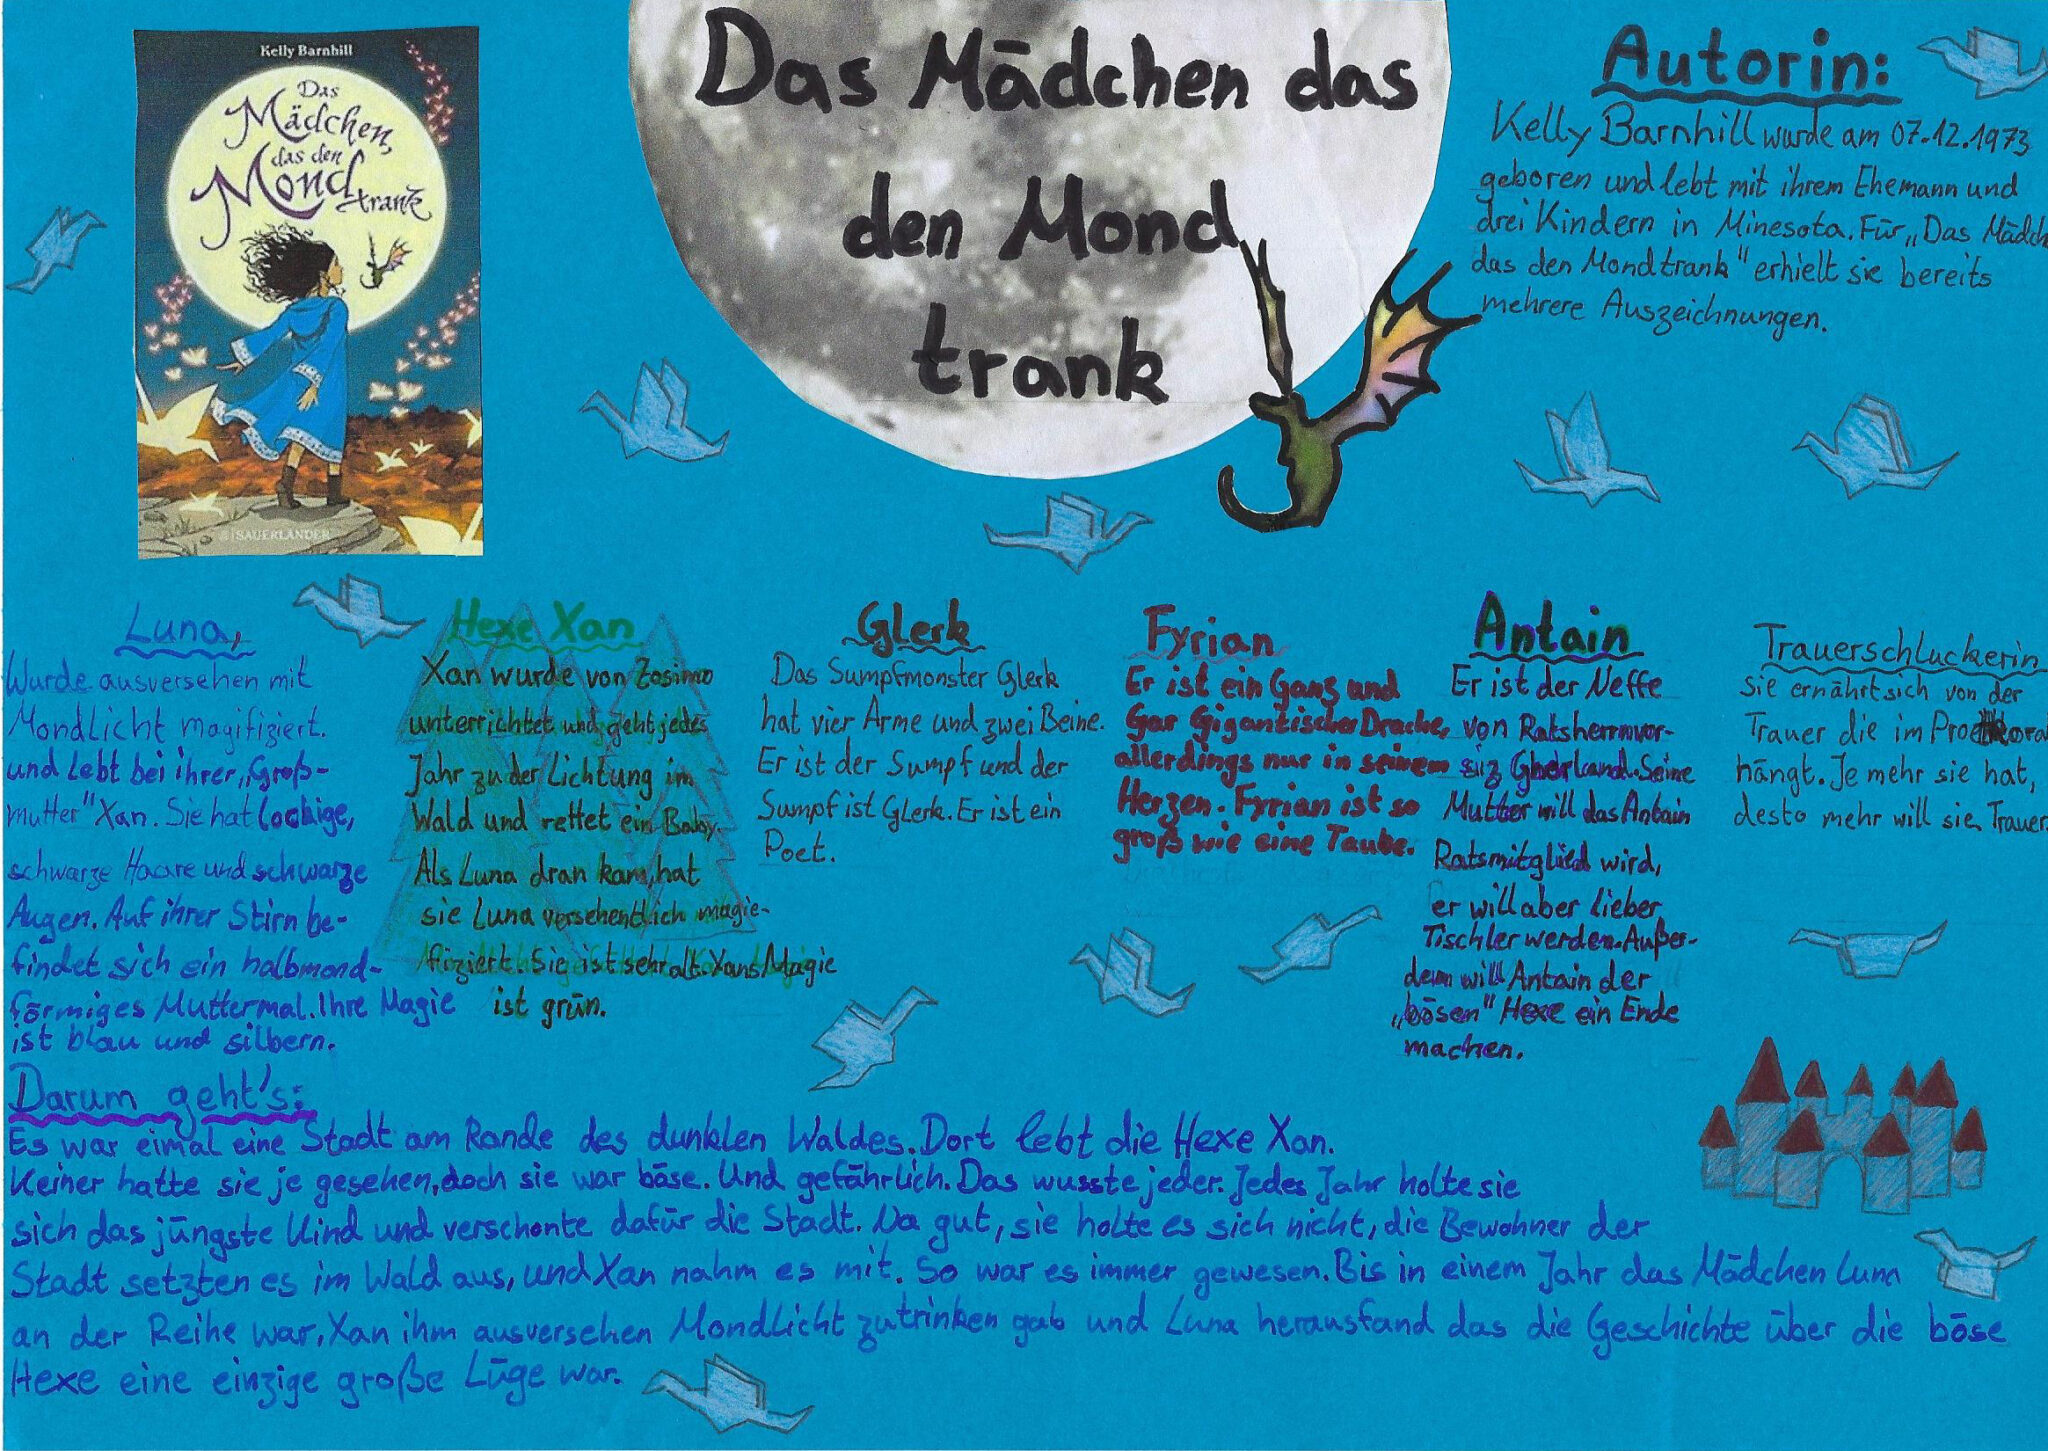 Kelly Barnhill
Das
Mädchen,
das den
Mond
trank
SAUERLÄNDER
Das Mädchen das
den Mond
trank
Autorin:
Kelly Barnhill wurde am 07.12.1973
geboren und lebt mit ihrem Ehemann und
drei Kindern in Minesota. Für „Das Mädch
das den Mond trank" erhielt sie bereits
mehrere Auszeichnungen.
Luna,
Wurde ausversehen mit
Mondlicht magifiziert.
und lebt bei ihrer „Groß-
mutter" Xan. Sie hat lockige,
schwarze Haare und schwarze
Augen. Auf ihrer Stirn be-
findet sich ein halbmond-
förmiges Muttermal. Ihre Magie
ist blau und silbern.
Hexe Xan
Xan wurde von Zosimo
unterrichtet und geht jedes
Jahr zu der Lichtung im
Wald und rettet ein Baby.
Als Luna dran kam, hat
sie Luna versehentlich magie-
fiziert. Sie ist sehr alt. Xans Magie
ist grün.
Glerk
Das Sumpfmonster Glerk
hat vier Arme und zwei Beine.
Er ist der Sumpf und der
Sumpf ist Glerk. Er ist ein
Poet.
Fyrian
Er ist ein Ganz und
Gar Gigantischer Drache,
allerdings nur in seinem
Herzen. Fyrian ist so
groß wie eine Taube.
Antain
Er ist der Neffe
von Ratsherrnvor-
siz Gherland. Seine
Mutter will das Antain
Ratsmitglied wird,
er will aber lieber
Tischler werden. Außer-
dem will Antain der
„bösen" Hexe ein Ende
machen.
Trauerschluckerin
sie ernährt sich von der
Trauer die im
hängt. Je mehr sie hat,
desto mehr will sie Trauer.
Darum geht's:
Es war eimal eine Stadt am Rande des dunklen Waldes. Dort lebt die Hexe Xan.
Keiner hatte sie je gesehen, doch sie war böse. Und gefährlich. Das wusste jeder. Jedes Jahr holte sie
sich das jüngste Kind und verschonte dafür die Stadt. Na gut, sie holte es sich nicht, die Bewohner der
Stadt setzten es im Wald aus, und Xan nahm es mit. So war es immer gewesen. Bis in einem Jahr das Mädchen Luna
an der Reihe war, Xan ihm ausversehen Mondlicht zutrinken gab und Luna herausfand das die Geschichte über die böse
Hexe eine einzige große Lüge war.